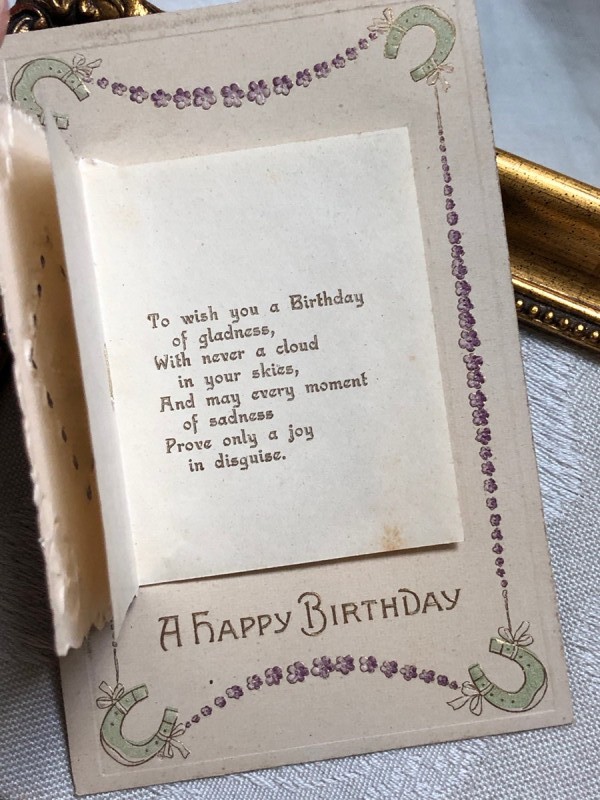 To wish you a Birthday
of gladness,
With never a cloud
in your skies,
And may every moment
of sadness
Prove only a joy
in disguise.
A HAPPY BIRTHDAY